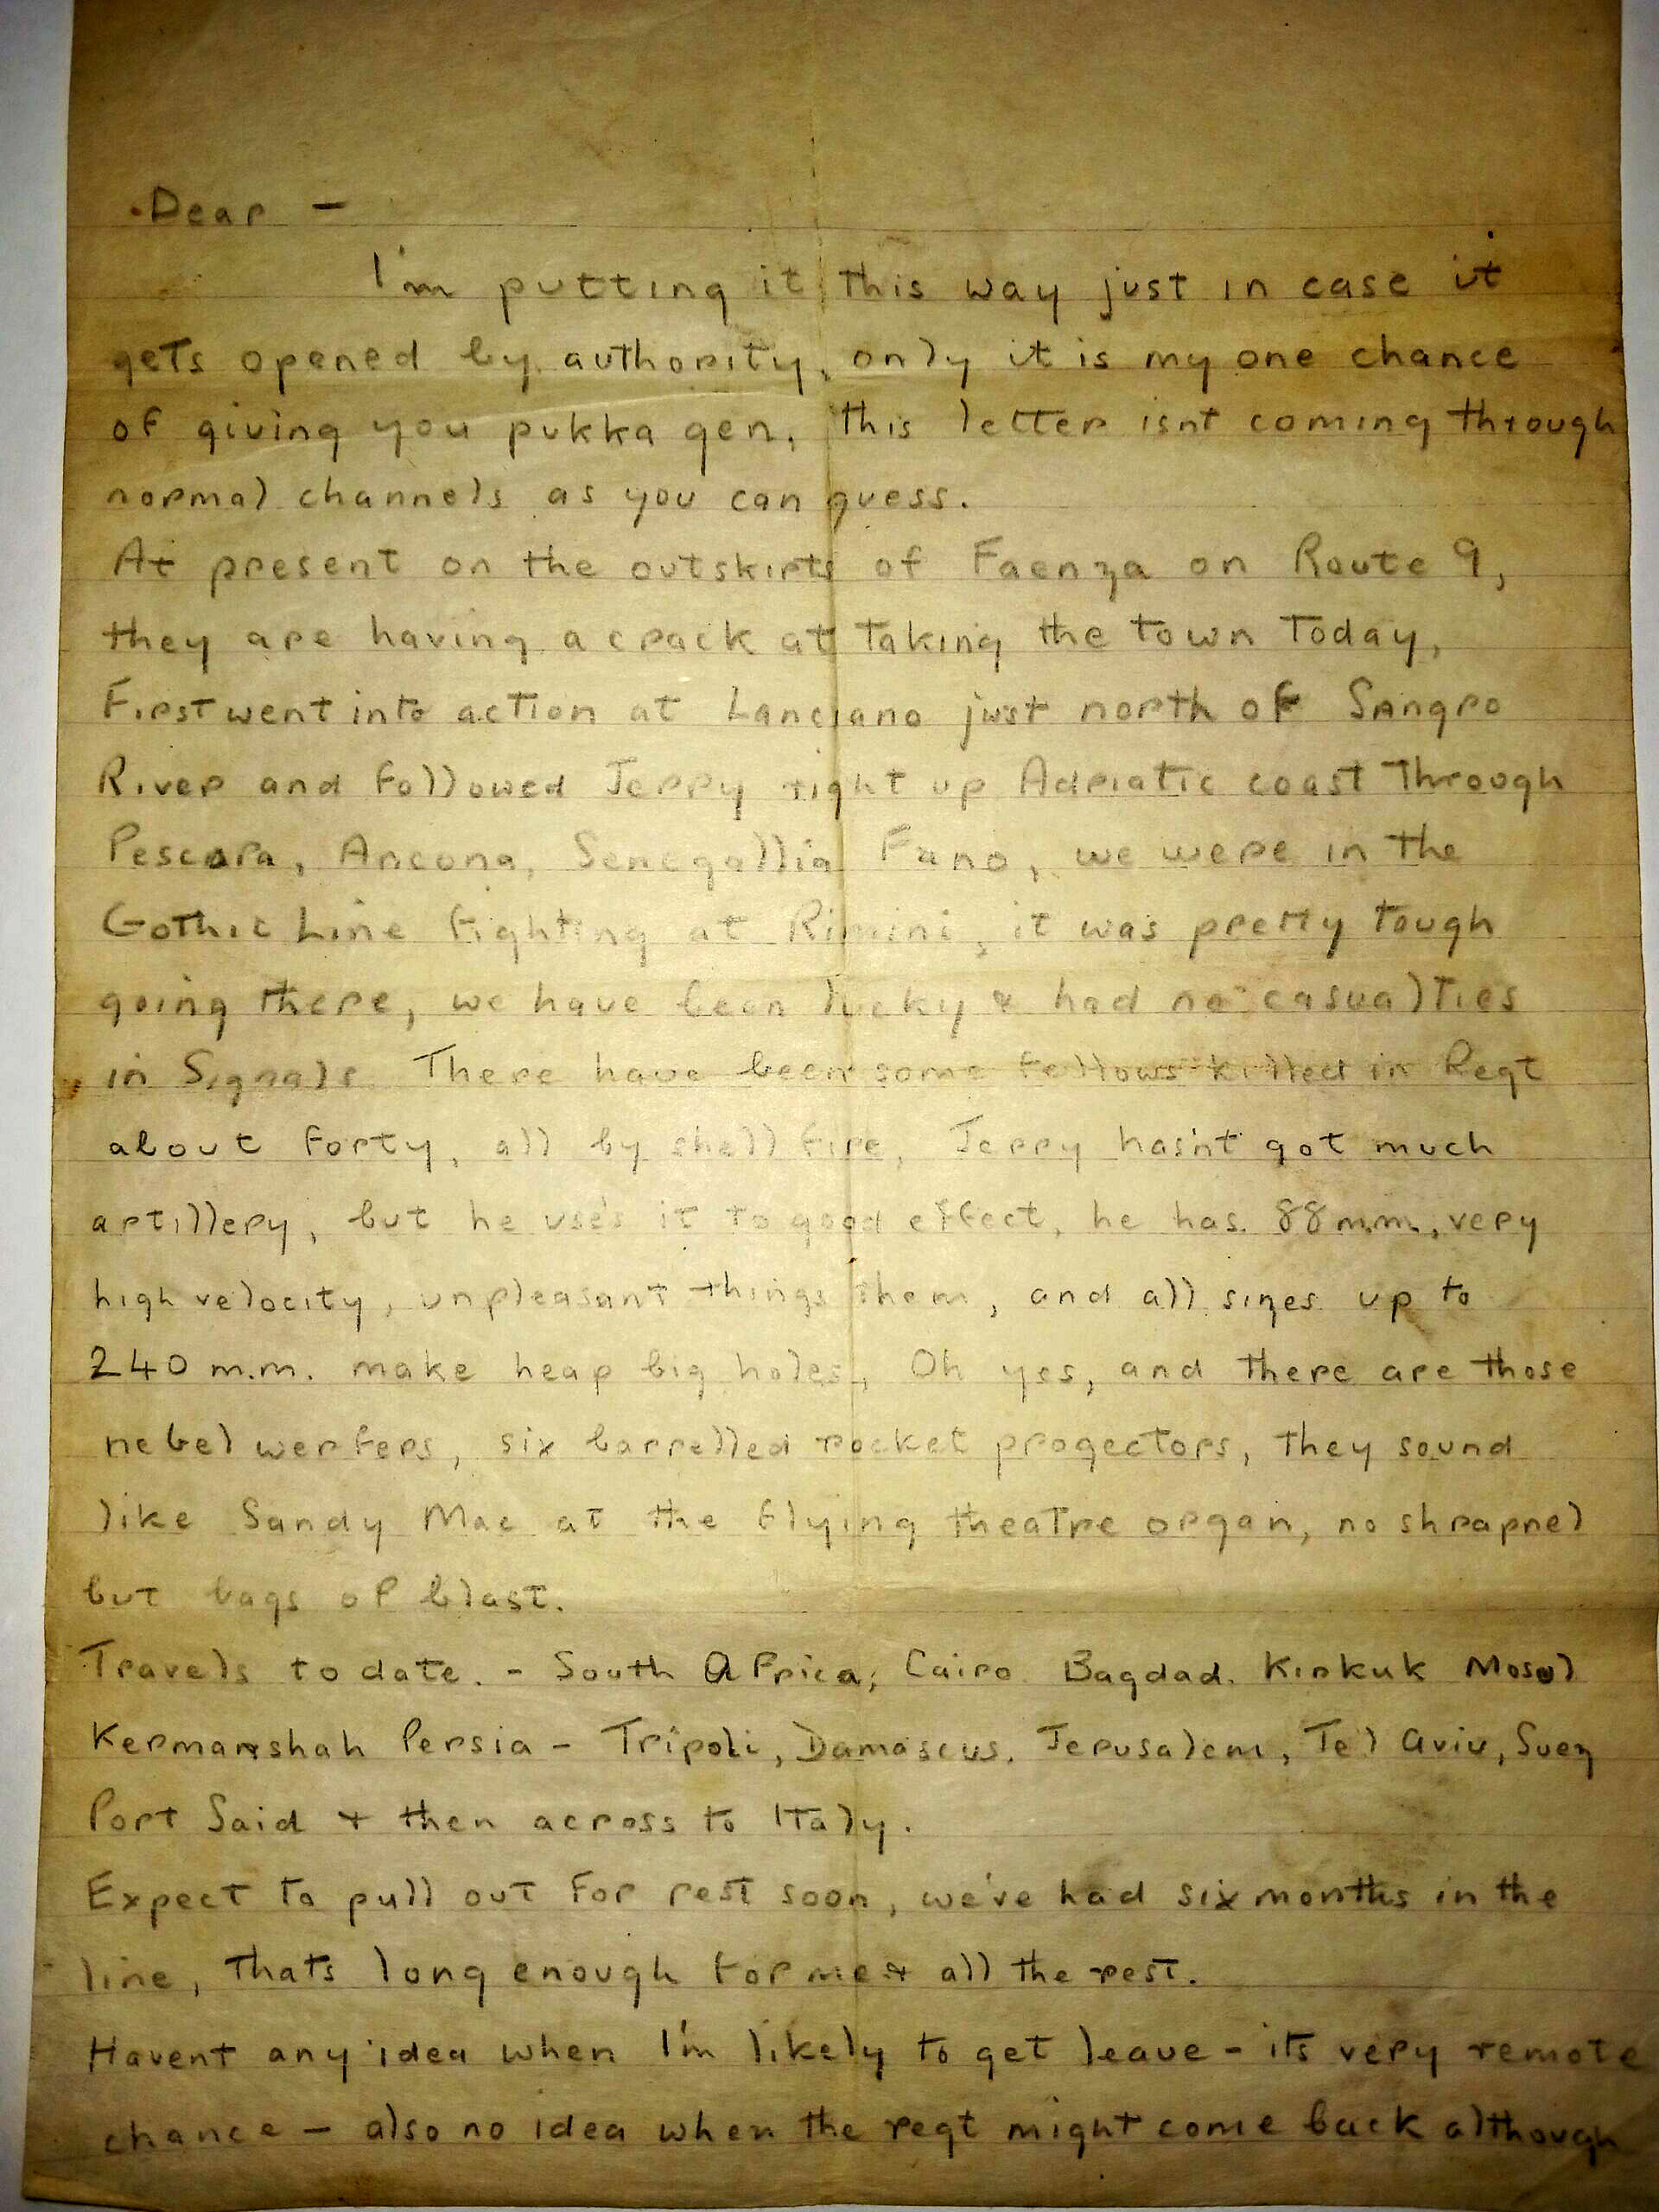 Dear -
I'm putting it this way just in case it
gets opened by authority, only it is my one chance
of giving you pukka gen, this letter isnt coming through
normal channels as you can guess.
At present on the outskirts of Faenza on Route 9,
they are having a crack at taking the town today,
First went into action at Lanciano just north of Sangro
River and followed Jerry right up Adriatic coast through
Pescara, Ancona, Senegallia Fano, we were in the
Gothic Line fighting at Rimini, it was pretty tough
going there, we have been lucky & had no casualties
in Signals There have been some fellows killed in Regt
about forty, all by shell fire, Jerry hasn't got much
artillery, but he use's it to good effect, he has 88 m.m, very
high velocity, unpleasant things them, and all sizes up to
240 m.m. make heap big holes, Oh yes, and there are those
nebel werfers, six barrelled rocket progectors, they sound
like Sandy Mac at the flying theatre organ, no shrapnel
but bags of blast.
Travels to date. - South Africa, Cairo Bagdad. Kirkuk Mosul
Kermanshah Persia - Tripoli, Damascus, Jerusalem, Tel Aviv, Suez
Port Said & then across to Italy.
Expect to pull out for rest soon, we've had six months in the
line, thats long enough for me & all the rest.
Havent any idea when I'm likely to get leave - its very remote
chance - also no idea when the regt might come back although